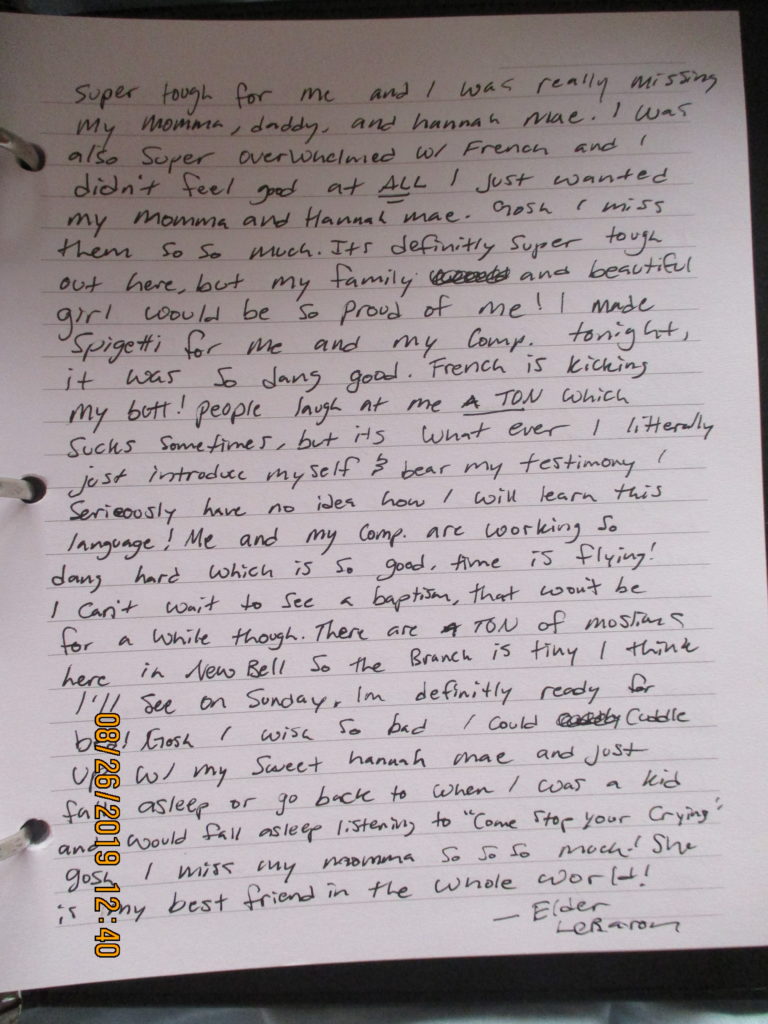 super tough for me and I was really missing
my momma, daddy, and hannah mae. I was
also Super overwhelmed w/ French and I
didn't feel good at ALL I just wanted
my momma and Hannah mae. Gosh I miss
them so so much. Its definitly super tough
out here, but my family and beautiful
girl would be so proud of me! I made
Spigetti for me and my comp. tonight,
it was so dang good. French is kicking
my butt! people laugh at me A TON which
sucks sometimes, but its what ever I litterally
just introduce myself & bear my testimony I
Serieously have no idea how I will learn this
language! Me and my comp. are working so
dang hard which is so good, time is flying!
I can't wait to see a baptism, that won't be
for a while though. There are A TON of moslims
here in New Bell so the Branch is tiny I think
I'll see on Sunday, Im definitly ready for
bed! Gosh I wish so bad I could Cuddle
up w/ my sweet hannah mae and just
fall asleep or go back to when I was a kid
and would fall asleep listening to "Come stop your crying"
gosh I miss my momma so so so much! She
is my best friend in the whole world!
— Elder
LeBaron
08/26/2019 12:40